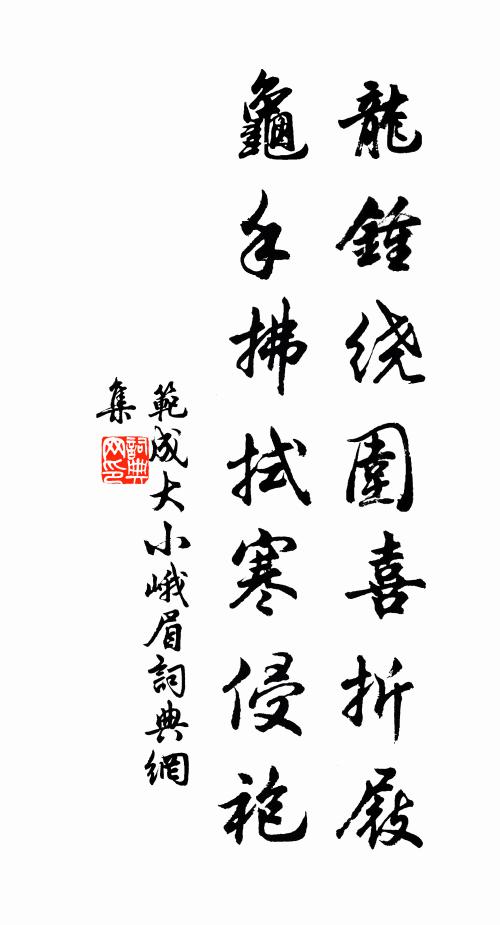 龍鍾绕圍喜折屐
龜手拂拭寒侵袍
範成大小峨眉詞典網
集
詞典网印